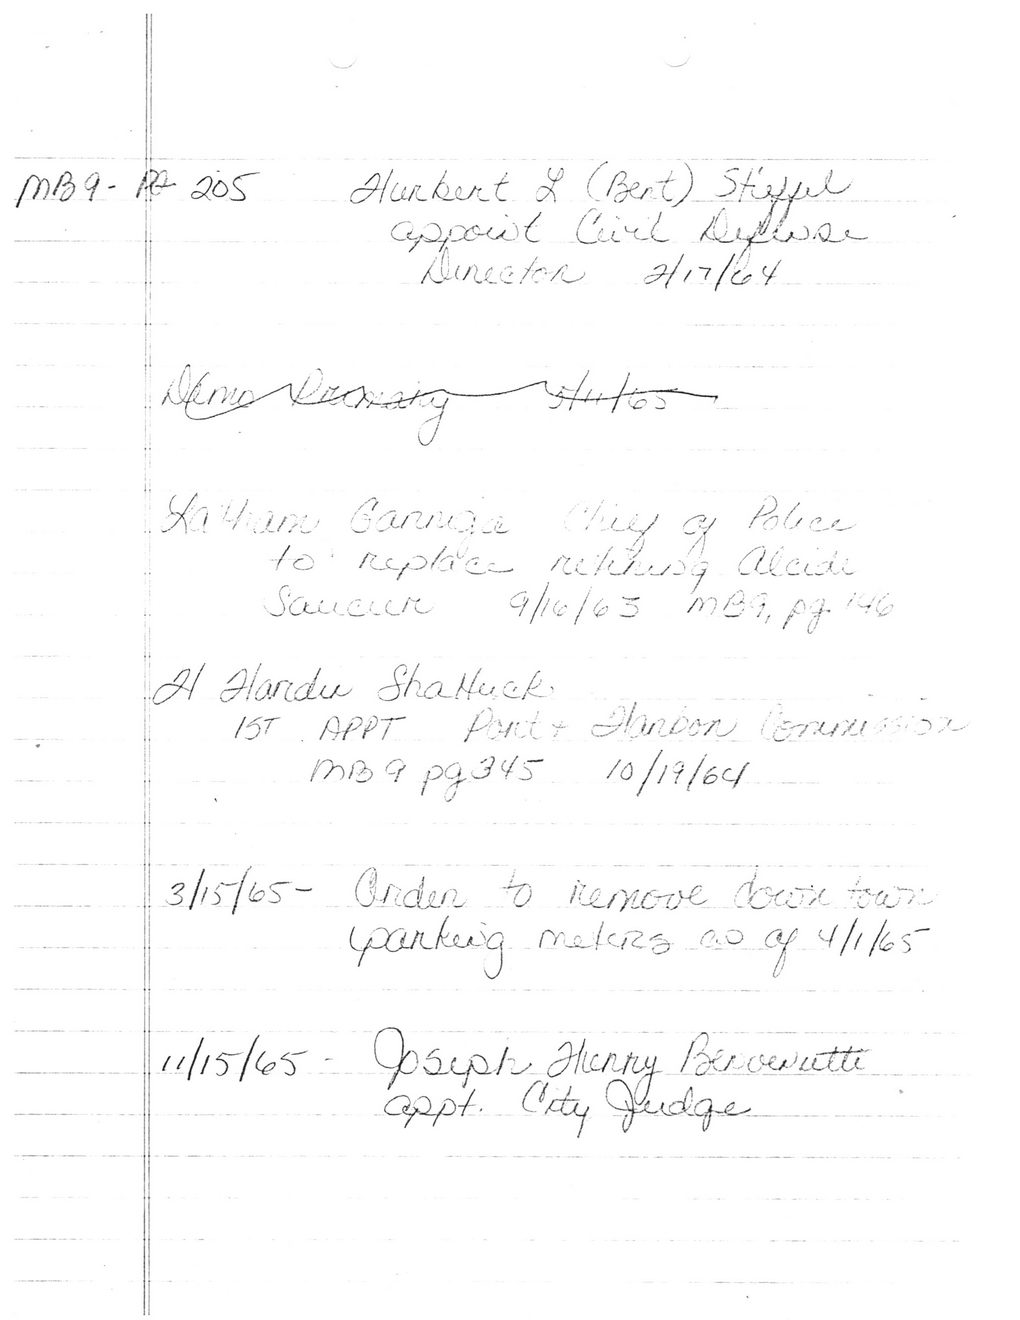 MB9 - Pg 205 Hurbert L (Bert) Steffel
appoint Civil Defense
Director 2/17/64
Demo Primary 5/11/65
Latham Garriga Chief of Police
to replace retiring Alcide
Saucier 9/16/63 MB9, pg 146
H Hardie Shattuck
1ST APPT Port + Harbor Commission
MB9 pg 345 10/19/64
3/15/65 - Order to remove down town
parking meters as of 4/1/65
11/15/65 - Joseph Henry Benvenutti
appt. City Judge